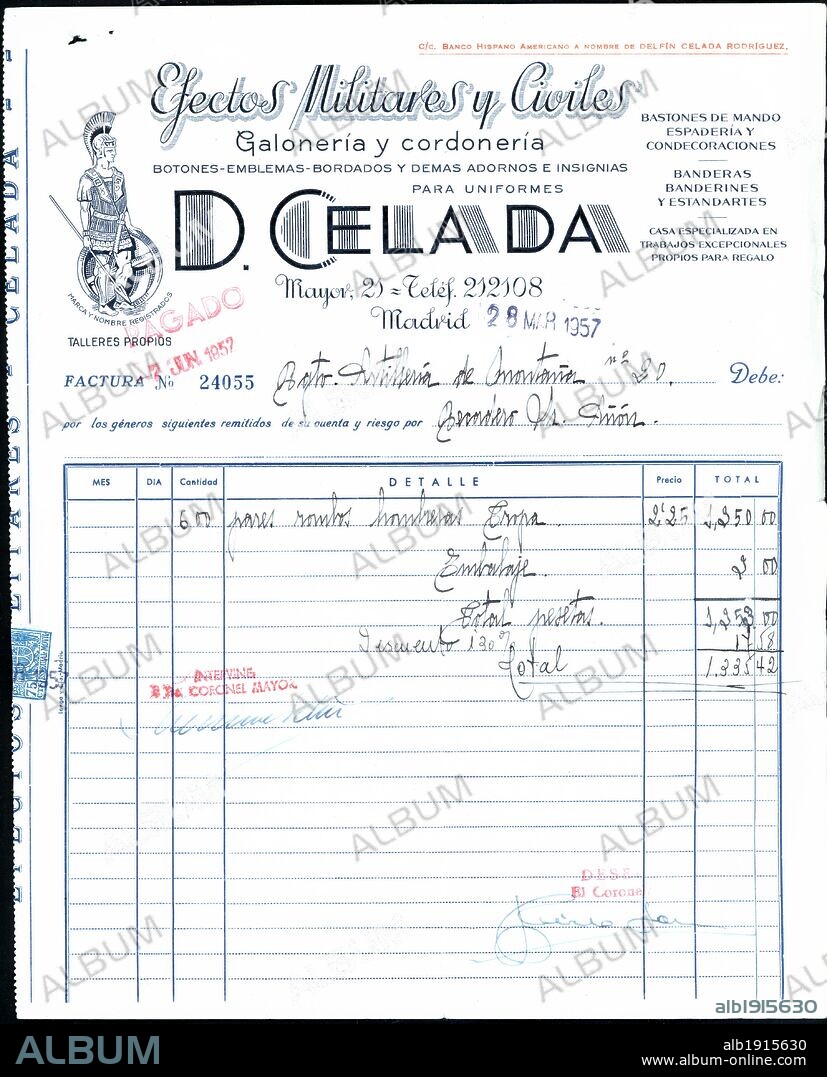 C/c. BANCO HISPANO AMERICANO A NOMBRE DE DELFÍN CELADA RODRÍGUEZ.
Efectos Militares y Civiles
Galonería y cordonería
BOTONES-EMBLEMAS-BORDADOS Y DEMAS ADORNOS E INSIGNIAS
PARA UNIFORMES
D. CELADA
Mayor, 21 = Teléf. 212108
Madrid 28 MAR 1957
BASTONES DE MANDO
ESPADERÍA Y
CONDECORACIONES
BANDERAS
BANDERINES
Y ESTANDARTES
CASA ESPECIALIZADA EN
TRABAJOS EXCEPCIONALES
PROPIOS PARA REGALO
MARCA Y NOMBRE REGISTRADOS
PAGADO
TALLERES PROPIOS
JUN 1957
FACTURA Nº 24055 Rgto. Artillería de Montaña nº 20. Debe:
por los géneros siguientes remitidos de su cuenta y riesgo por Recadero Sr.
MES DIA Cantidad DETALLE Precio TOTAL
600 pares rombos hombreras Tropa. 2'25 1,350 00
Embalaje. 3 00
Total pesetas. 1,353.00
Descuento 1'30% 17 58
Total 1.335 42
INTERVINE
CORONEL MAYOR
DESE
El Coronel
EFECTOS MILITARES CELADA
ALBUM
alb1915630
ALBUM
alb1915630
www.album-online.com